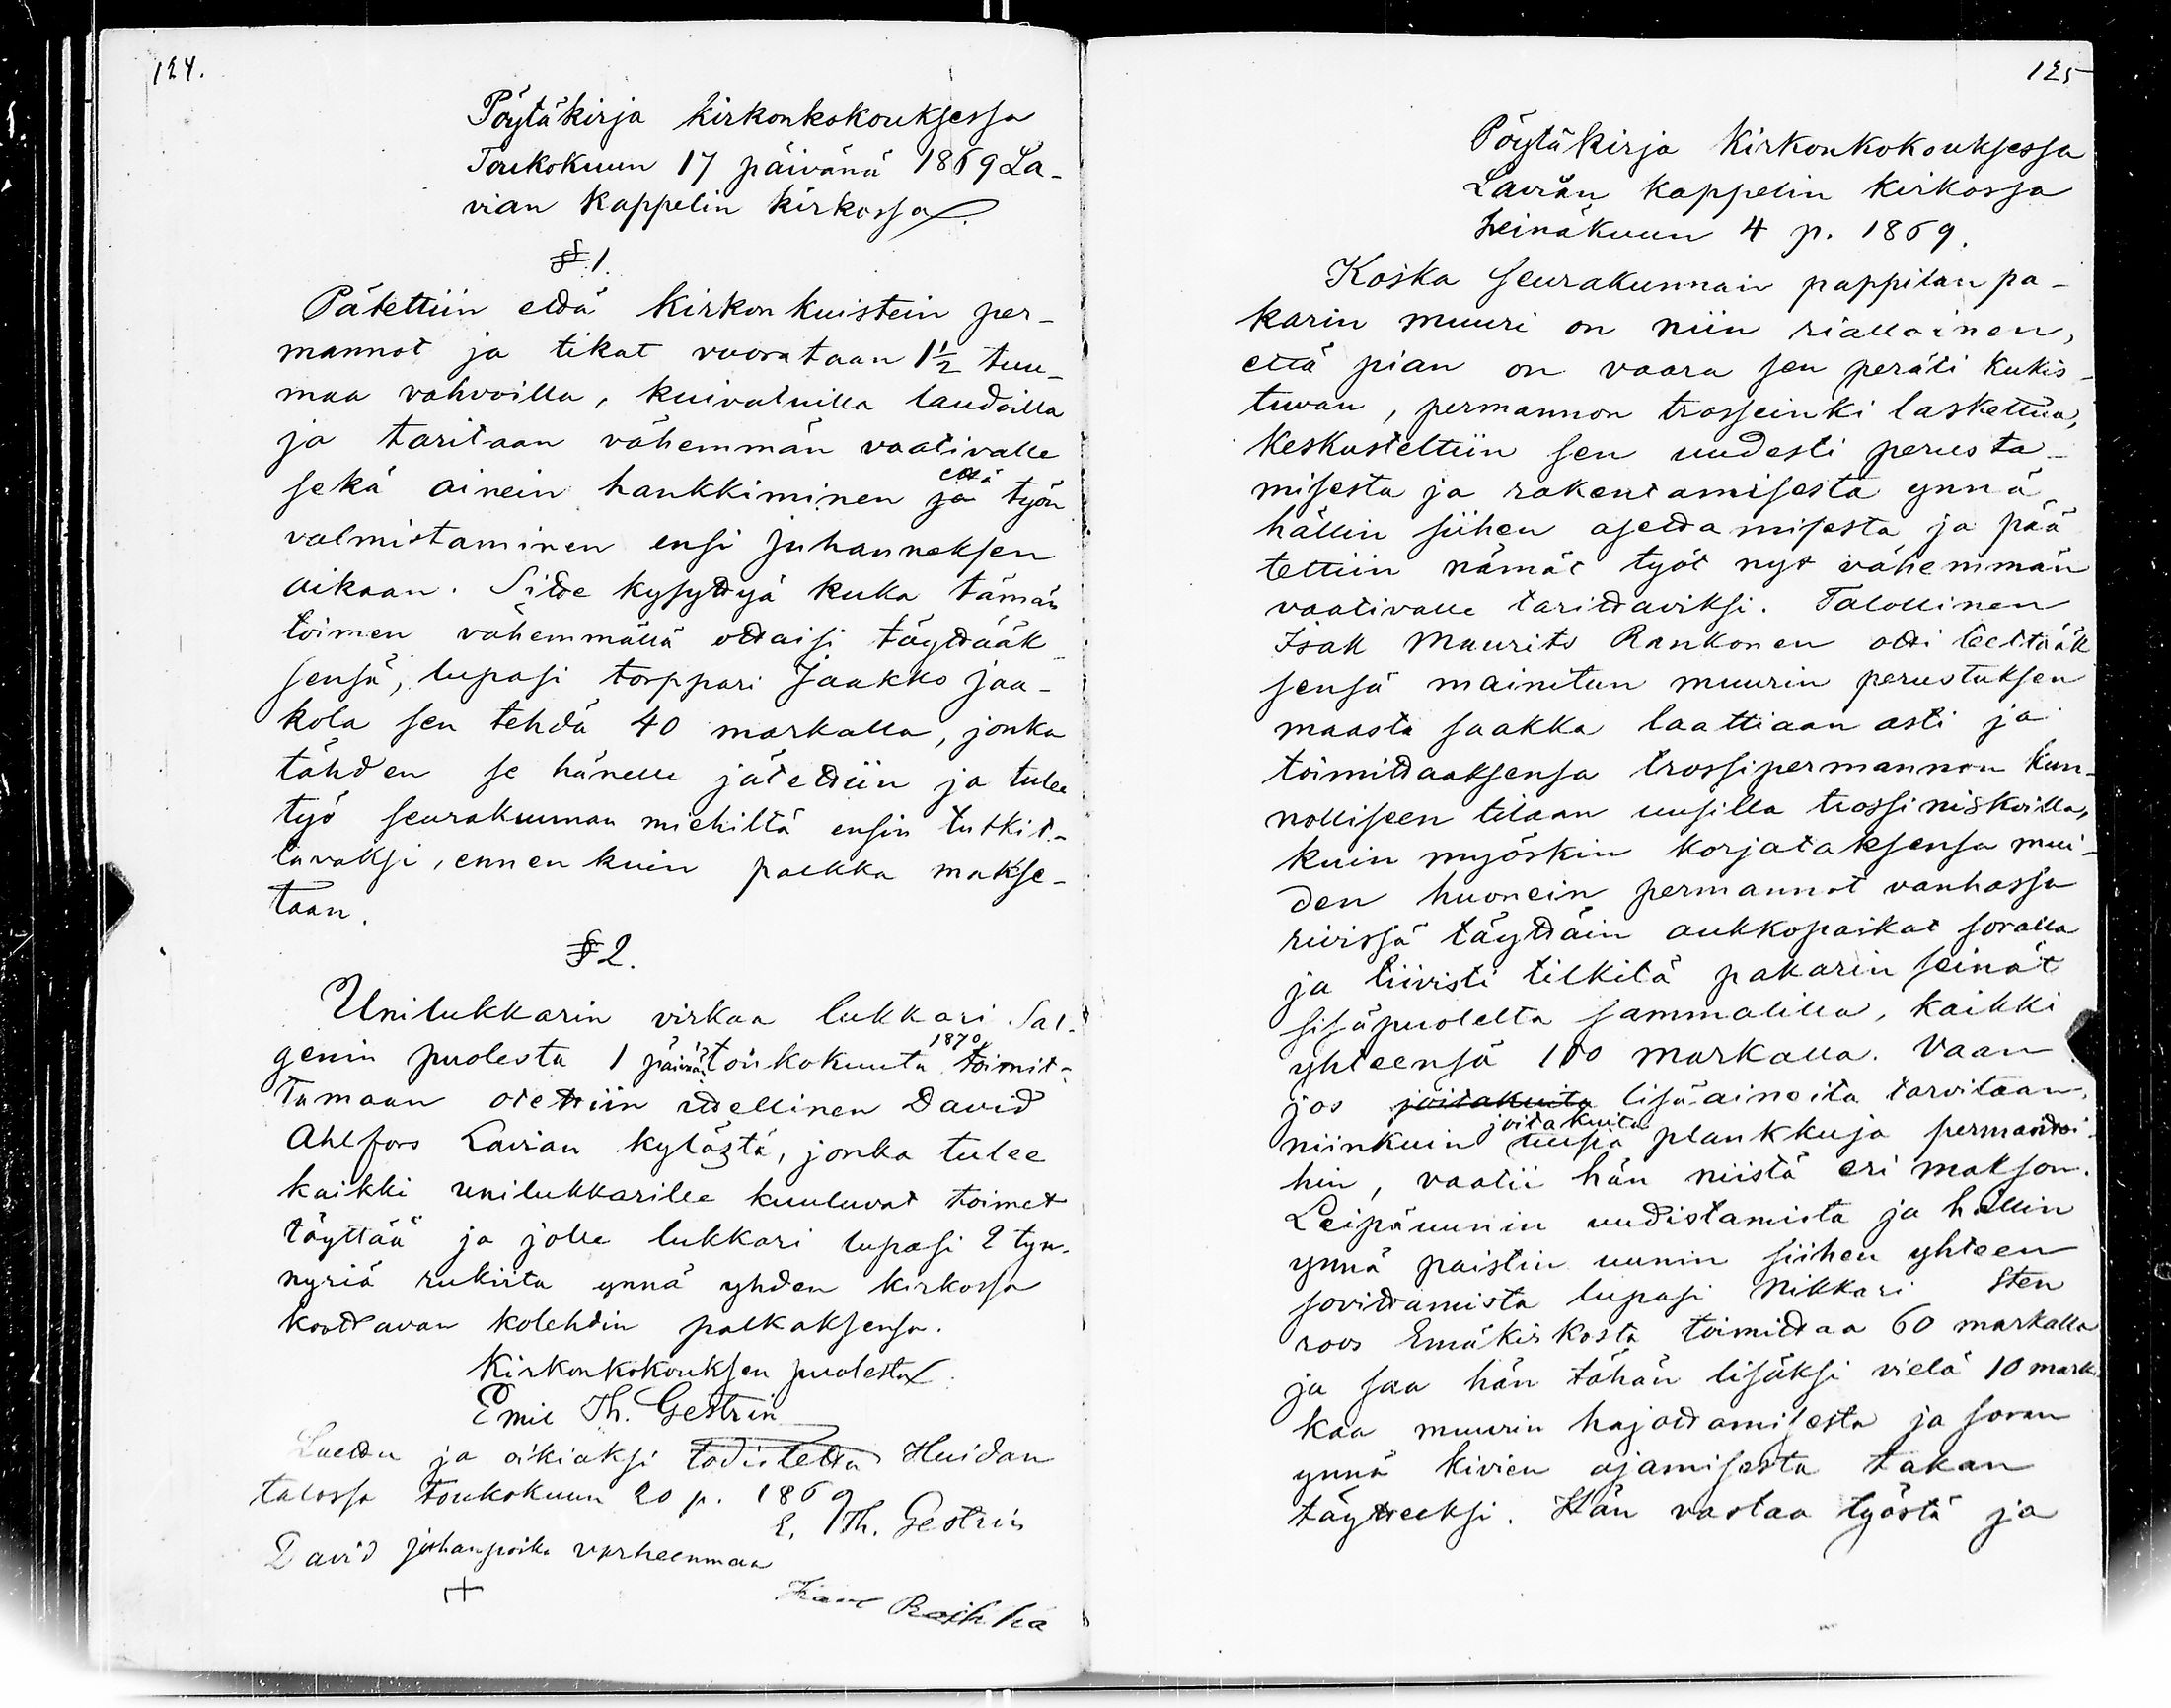 124.
Pöytäkirja kirkonkokouksessa
Toukokuun 17 päivänä 1869 La-
vian kappelin kirkossa.
§ 1.
Pätettiin että kirkon kuistein per-
mannot ja tikat vuorataan 1½ tuu-
maa vahvoilla, kuivatuilla laudoilla
ja taritaan vähemmän vaativalle
sekä ainein hankkiminen ja että työn
valmistaminen ensi Juhanneksen
aikaan. Sitte kysyttyä kuka tämän
toimen vähemmällä ottaisi täyttääk-
sensä, lupasi torppari Jaakko Jaa-
kola sen tehdä 40 markalla, jonka
tähden se hänelle jätettiin ja tulee
työ seurakunnan miehiltä ensin tutkit-
tavaksi, ennen kuin palkka makse-
taan.
§ 2.
Unilukkarin virkaa lukkari Sal-
genin puolesta 1 päivästä toukokuuta 1870 toimit-
tamaan otettiin itsellinen David
Ahlfors Lavian kylästä, jonka tulee
kaikki unilukkarille kuuluvat toimet
täyttää ja jolle lukkari lupasi 2 tyn-
nyriä rukiita ynnä yhden kirkossa
koottavan kolehtin palkaksensa.
Kirkonkokouksen puolesta
Emil Th. Gestrin
Luettu ja oikiaksi todistettu Huidan
talossa toukokuun 20 p. 1869
E. Th. Gestrin
David Juhanpoika Varheenmaa
+
125
Pöytäkirja Kirkonkokouksessa
Lavian kappelin kirkossa
Heinäkuun 4 p. 1869.
Koska seurakunnan pappilan pa-
karin muuri on niin riallainen,
että pian on vaara sen peräti kukis-
tuvan, permannon trosseinki laskettua,
keskusteltiin sen uudesti perusta-
misesta ja rakentamisesta ynnä
hällin siihen asettamisesta ja pää
tettiin nämät työt nyt vähemmän
vaativalle tarittaviksi. Talollinen
Isak Maurits Rankonen otti teettääk
sensä mainitun muurin perustuksen
maasta saakka laattiaan asti ja
toimittaaksensa trossipermannon kun-
nolliseen tilaan uusilla trossiniskoilla,
kuin myöskin korjataksensa mui-
den huonein permannot vanhassa
rivissä täyttäin aukkopaikat soralla
ja tiivisti tilkitä pakarin seinät
sisäpuolelta sammalilla, kaikki
yhteensä 100 markalla. Vaan
jos joitakuita lisäaineita tarvitaan,
niinkuin joitakuita uusia plankkuja permantoi-
hin, vaatii hän niistä eri makson.
Leipäuunin uudistamista ja hällin
ynnä paistin uunin siihen yhteen
sovittamista lupasi Nikkari Sten
roos Emäkirkosta toimittaa 60 markalla
ja saa hän tähän lisäksi vielä 10 mark-
kaa muurin hajottamisesta ja soran
ynnä kivien ajamisesta takan
täytteeksi. Hän vastaa työstä ja